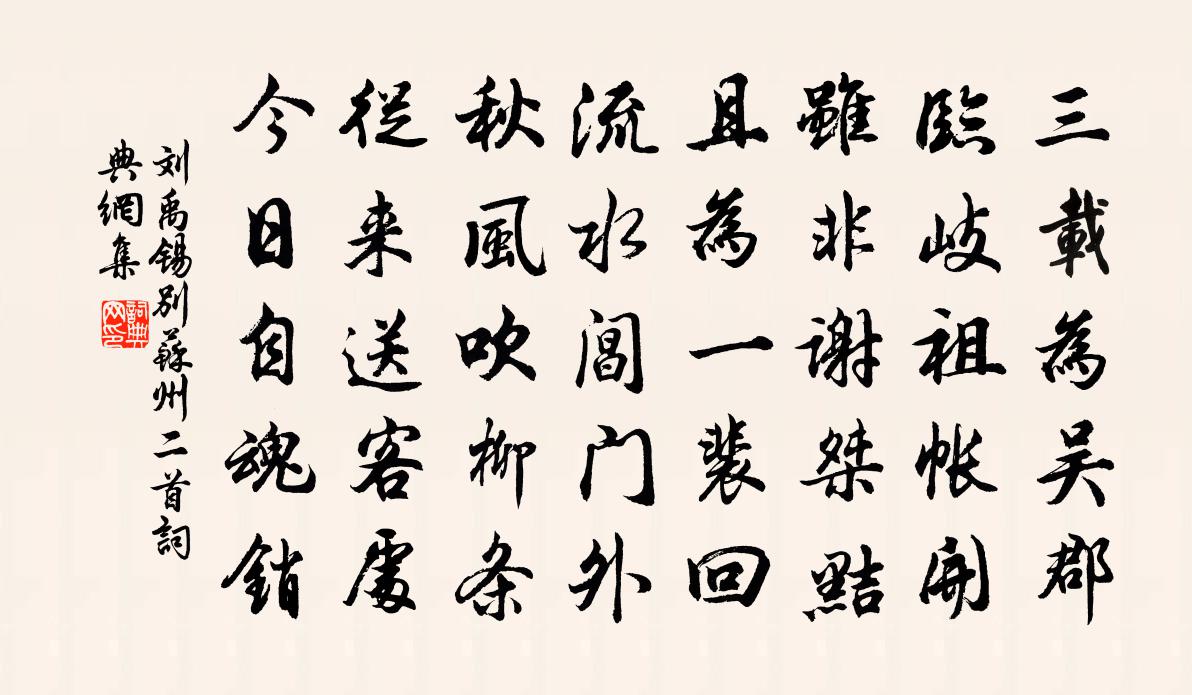 三載為吴郡
臨岐祖帐開
雖非謝桀黠
且為一裴回
流水閶门外
秋風吹柳条
從来送客處
今日自魂銷
刘禹锡别蘇州二首詞
典網集
詞典网印